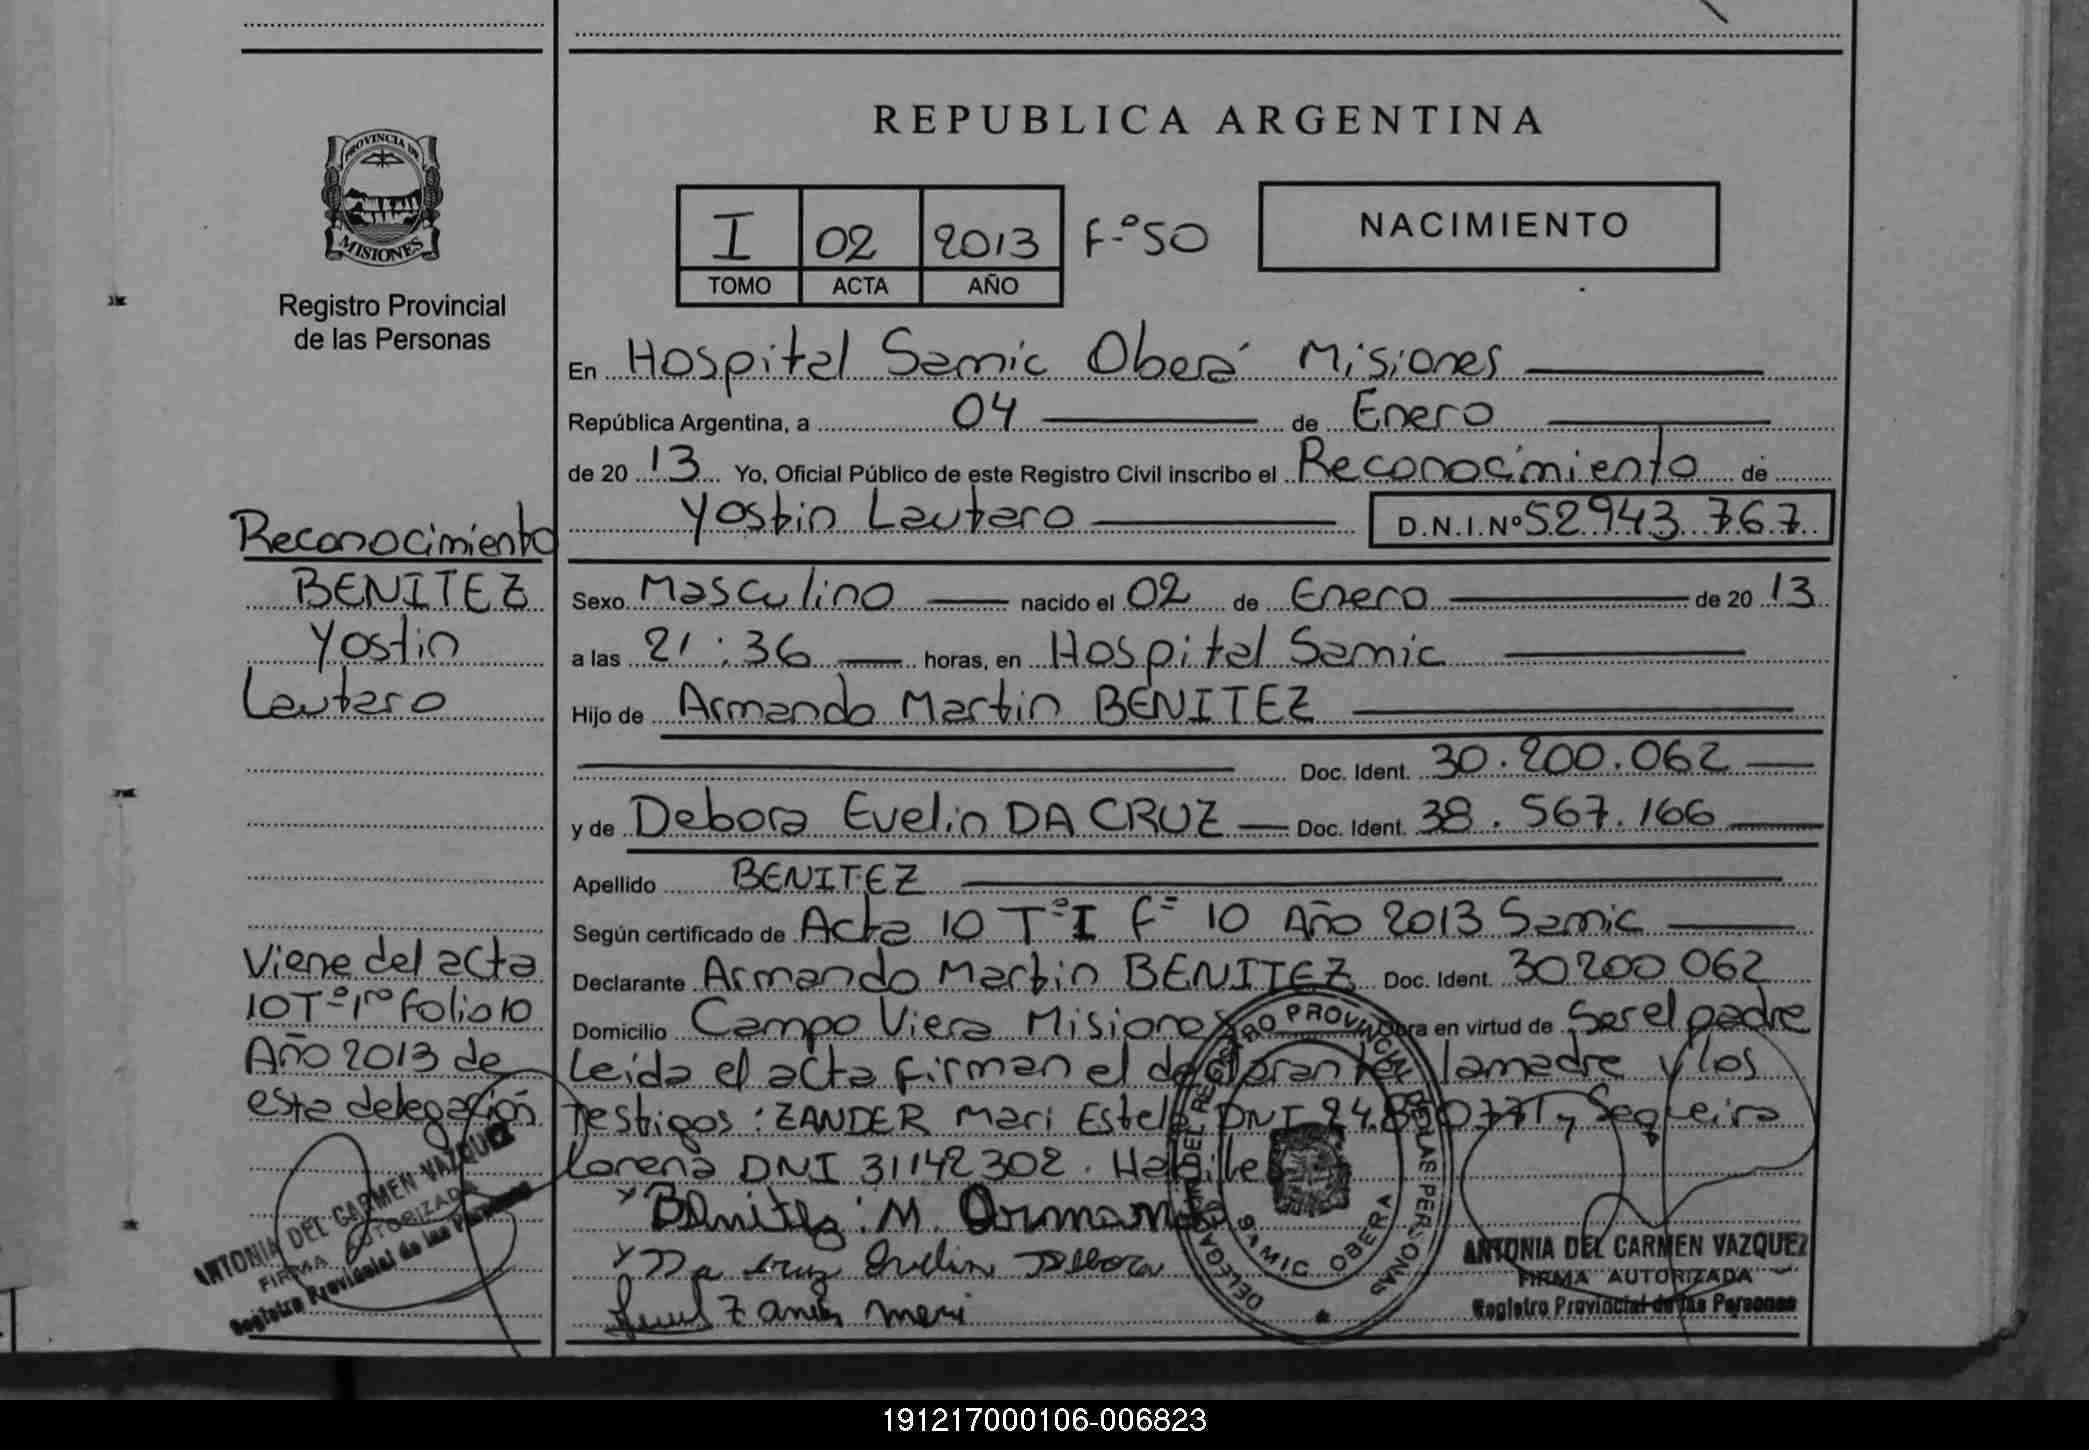 REPUBLICA ARGENTINA
PROVINCIA DE MISIONES
Registro Provincial
de las Personas
I 02 2013 F.º 50
TOMO ACTA AÑO
NACIMIENTO
En Hospital Samic Oberá Misiones
República Argentina, a 04 de Enero
de 20 13 Yo, Oficial Público de este Registro Civil inscribo el Reconocimiento de
Yostin Lautaro D.N.I.Nº 52.943.767
Sexo Masculino nacido el 02 de Enero de 20 13
a las 21:36 horas, en Hospital Samic
Hijo de Armando Martin BENITEZ
Doc. Ident. 30.200.062
y de Debora Evelin DA CRUZ Doc. Ident. 38.567.166
Apellido BENITEZ
Según certificado de Acta 10 Tº I Fº 10 Año 2013 Samic
Declarante Armando Martin BENITEZ Doc. Ident. 30200062
Domicilio Campo Viera Misiones Obra en virtud de Ser el padre
Leida el acta firman el declarante, la madre y los
Testigos: ZANDER Mari Estela DNI y Seqveira
Lorena DNI 31142302. Habiles
Benitez M. Armando
Da cruz Evelin Debora
Zander Meri
Reconocimiento
BENITEZ
Yostin
Lautaro
Viene del acta
10 Tº 1ro Folio 10
Año 2013 de
esta delegación
ANTONIA DEL CARMEN VAZQUEZ
FIRMA AUTORIZADA
Registro Provincial de las Personas
DELEGACION DEL REGISTRO PROVINCIAL DE LAS PERSONAS
SAMIC OBERA
ANTONIA DEL CARMEN VAZQUEZ
FIRMA AUTORIZADA
Registro Provincial de las Personas
191217000106-006823